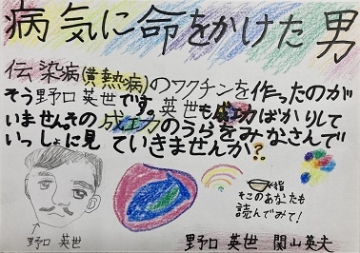 病気に命をかけた男
伝染病(黄熱病)のワクチンを作ったのが
そう野口英世です。英世も成功ばかりして
いません。その成功のうらをみなさんで
いっしょに見ていきませんか?
そこのあなたも
読んでみて!
野口 英世
野口 英世 関山英夫